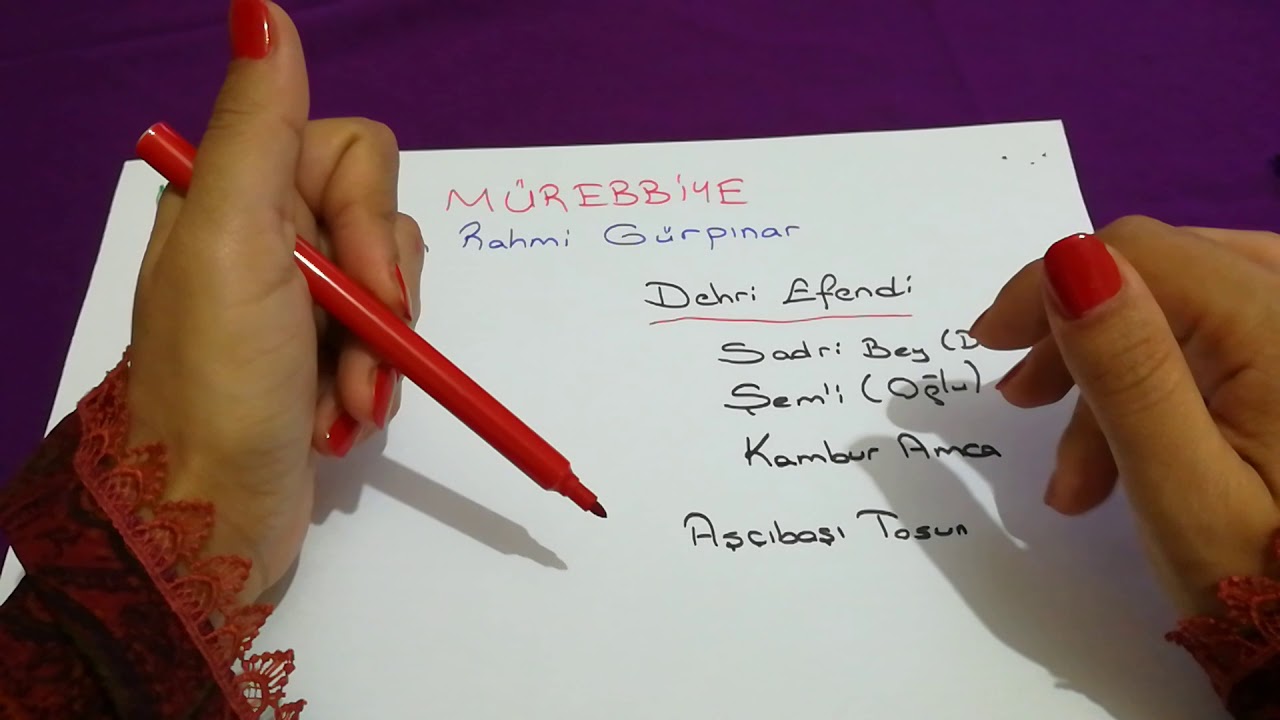 MÜREBBİYE
Rahmi Gürpınar
Dehri Efendi
Sadri Bey (D
Şem'i (Oğlu)
Kambur Amca
Aşçıbaşı Tosun